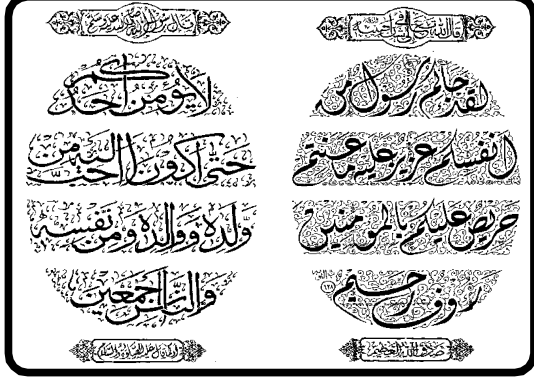 قال الله
لقد جاءكم رسول من
انفسكم عزيز عليه ما عنتم
حريص عليكم بالمؤمنين
رؤوف رحيم ١٢٨
صدق الله العظيم
قال رسول الله
لا يؤمن أحدكم
حتى أكون أحب اليه من
ولده ووالده ومن نفسه
والناس أجمعين
او كما قال عليه الصلاة والسلام